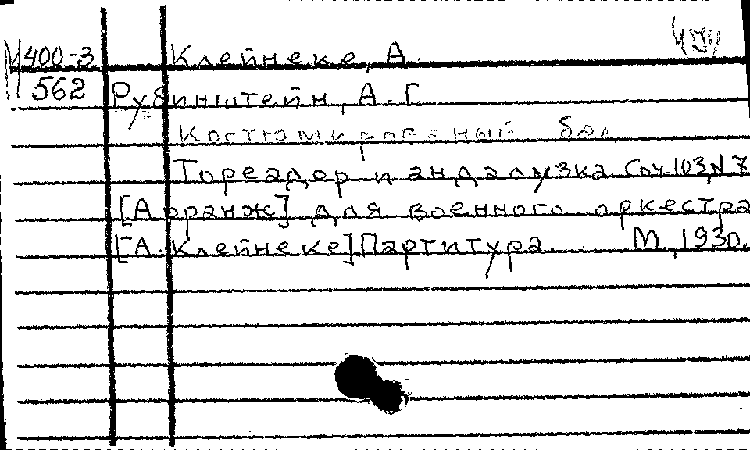 М400-3 Клейнеке, А.
562 Рубинштейн, А. Г.
Костюмированный бал
Тореадор и андалузка Соч.103,N7
[Арранж] для военного оркестра
[А. Клейнеке] Партитура. М., 193